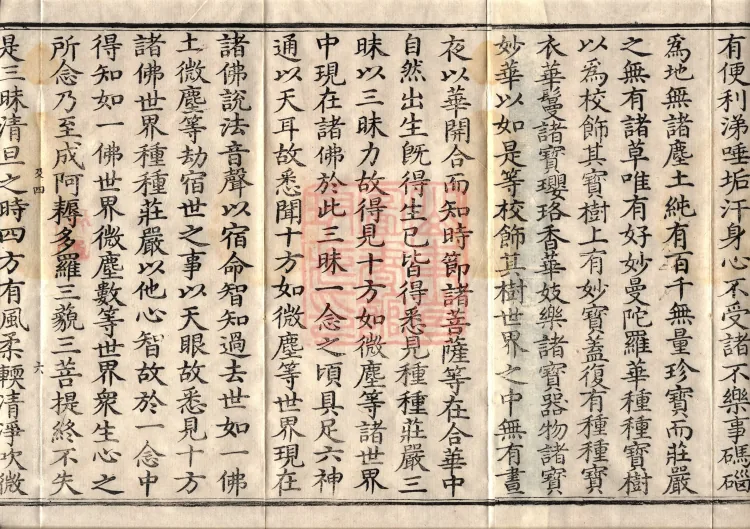 有便利涕唾垢汗身心不受諸不樂事碼碯
爲地無諸塵土純有百千無量珍寶而莊嚴
之無有諸草唯有好妙曼陀羅華種種寶樹
以爲校飾其寶樹上有妙寶蓋復有種種寶
衣華鬘諸寶瓔珞香華妓樂諸寶器物諸寶
妙華以如是等校飾其樹世界之中無有晝
夜以華開合而知時節諸菩薩等在合華中
自然出生旣得生已皆得悉見種種莊嚴三
昧以三昧力故得見十方如微塵等諸世界
中現在諸佛於此三昧一念之頃具足六神
通以天耳故悉聞十方如微塵等世界現在
諸佛說法音聲以宿命智知過去世如一佛
土微塵等劫宿世之事以天眼故悉見十方
諸佛世界種種莊嚴以他心智故於一念中
得知如一佛世界微塵數等世界衆生心之
所念乃至成阿耨多羅三藐三菩提終不失
四 六
是三昧清旦之時四方有風柔輭清淨吹微